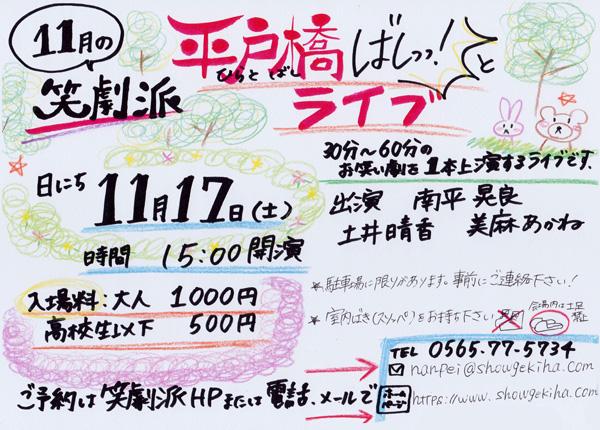 11月の
笑劇派
平戸橋ばしっっ!と
ひらと ばし
ライブ
30分〜60分の
お笑い劇を1本上演するライブです、
日にち 11月17日(土)
時間 15:00 開演
出演 南平 晃良
土井晴香 美麻あかね
入場料:大人 1000円
高校生以下 500円
*駐車場に限りがあります。事前にご連絡下さい!
*室内ばき(スリッパ)をお持ち下さい
会場内は土足
禁止
TEL 0565-77-5734
nanpei@showgekiha.com
ご予約は笑劇派HPまたは電話、メールで
ホームページ https://www.showgekiha.com